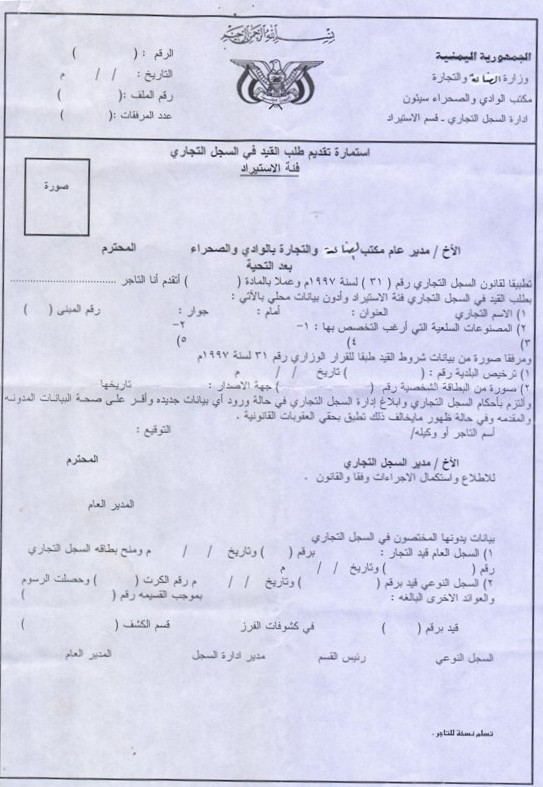 بسم الله الرحمن الرحيم
الجمهورية اليمنية
وزارة الصناعة والتجارة
مكتب الوادي والصحراء سيئون
ادارة السجل التجاري - قسم الاستيراد
الرقم : ( )
التاريخ : / / م
رقم الملف :( )
عدد المرفقات :( )
استمارة تقديم طلب القيد في السجل التجاري
فئة الاستيراد
صورة
الأخ / مدير عام مكتب الصناعة والتجارة بالوادي والصحراء المحترم
بعد التحية
تطبيقا لقانون السجل التجاري رقم ( ٣١ ) لسنة ١٩٩٧م وعملا بالمادة ( ) أتقدم أنا التاجر ........................
بطلب القيد في السجل التجاري فئة الاستيراد وأدون بيانات محلي بالأتي :
١) الاسم التجاري العنوان : أمام : جوار : رقم المبنى ( )
٢) المصنوعات السلعية التي أرغب التخصص بها : ١- ٢-
٣) ٤) ٥)
ومرفقا صورة من بيانات شروط القيد طبقا للقرار الوزاري رقم ٣١ لسنة ١٩٩٧م
١) ترخيص البلدية رقم : ( ) تاريخ / / م
٢) صورة من البطاقة الشخصية رقم ( ) جهة الاصدار : تاريخها
والتزم بأحكام السجل التجاري وابلاغ إدارة السجل التجاري في حالة ورود أي بيانات جديده وأقر على صحة البيانات المدونه
والمقدمه وفي حالة ظهور مايخالف ذلك تطبق بحقي العقوبات القانونية .
أسم التاجر أو وكيله/ التوقيع :
الأخ / مدير السجل التجاري المحترم
للاطلاع واستكمال الاجراءات وفقا والقانون .
المدير العام
بيانات يدونها المختصون في السجل التجاري
١) السجل العام قيد التجار : برقم ( ) وتاريخ / / م ومنح بطاقه السجل التجاري
رقم ( ) وتاريخ / / م
٢) السجل النوعي قيد برقم ( ) وتاريخ / / م رقم الكرت ( ) وحصلت الرسوم
والعوائد الاخرى البالغه : بموجب القسيمه رقم ( )
قيد برقم ( ) في كشوفات الفرز قسم الكشف ( )
السجل النوعي رئيس القسم مدير ادارة السجل المدير العام
تسلم نسخة للتاجر .